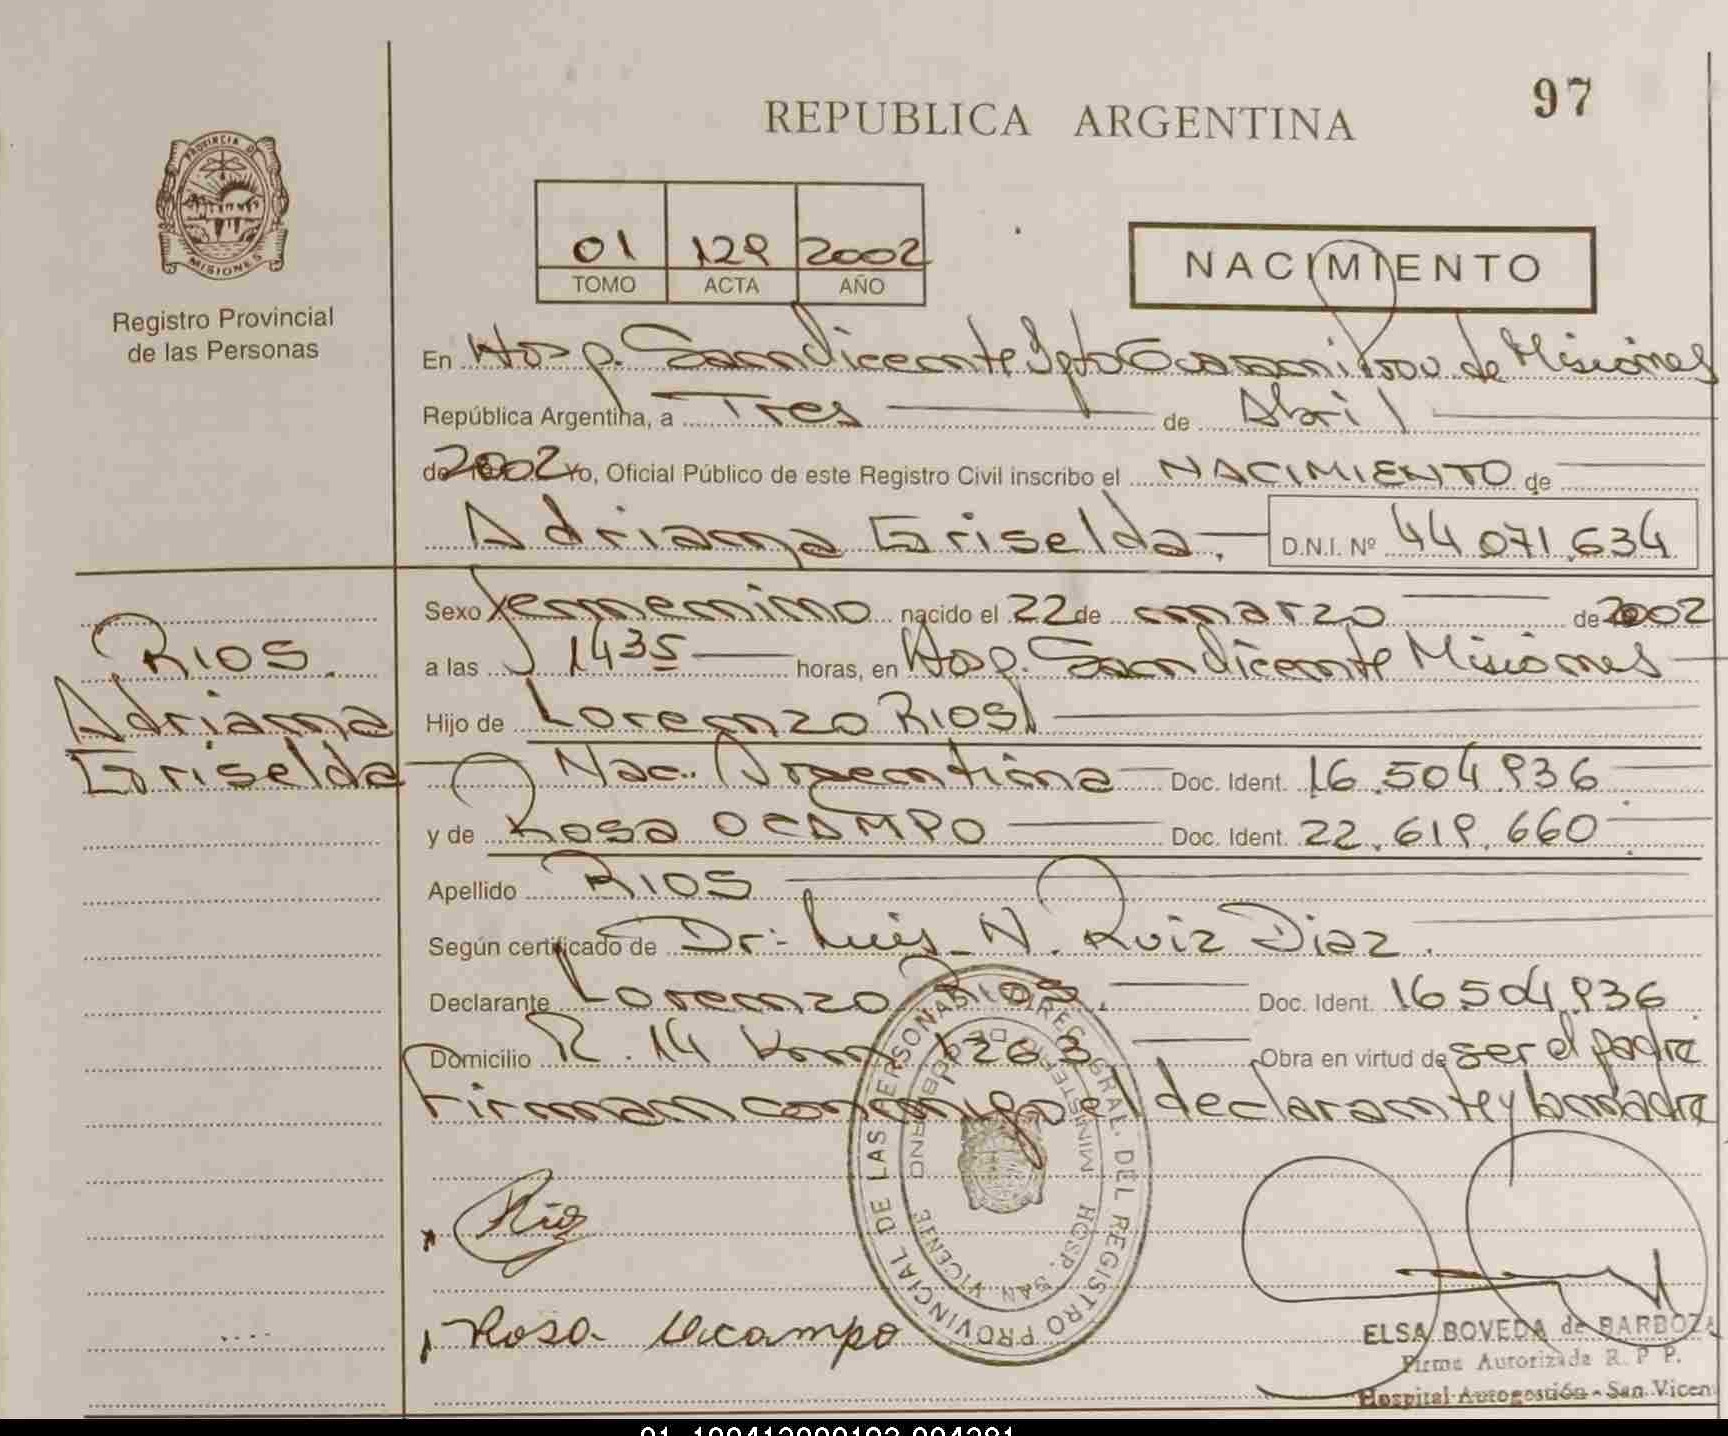 97
REPUBLICA ARGENTINA
PROVINCIA DE
MISIONES
Registro Provincial
de las Personas
01 129 2002
TOMO ACTA AÑO
NACIMIENTO
En Hosp. San Vicente Dpto Guarani Prov de Misiones
República Argentina, a Tres de Abril
de 2002 Yo, Oficial Público de este Registro Civil inscribo el NACIMIENTO de
Adriana Griselda. D.N.I. Nº 44.071.634
Sexo femenino nacido el 22 de marzo de 2002
RIOS.
a las 1435 horas, en Hosp. San Vicente Misiones
Adriana
Hijo de Lorenzo RIOS
Griselda
Nac. Argentina Doc. Ident. 16.504.936
y de Rosa OCAMPO Doc. Ident. 22.619.660
Apellido RIOS
Según certificado de Dr: Luis N. Ruiz Diaz.
Declarante Lorenzo Rios. Doc. Ident. 16504.936
Domicilio R. 14 Km 1263 Obra en virtud de ser el padre
Firman conmigo el declarante y la madre
DIREC. GRAL. DEL REGISTRO PROVINCIAL DE LAS PERSONAS
MINISTERIO DE GOBIERNO
HOSP. SAN VICENTE
Rios
Rosa Ocampo
ELSA BOVEDA de BARBOZA
Firma Autorizada R. P. P.
Hospital Autogestión - San Vicen